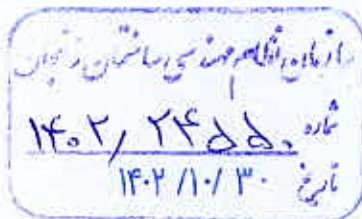 سازمان نظام مهندسی ساختمان زنجان
شماره ۱۴۰۲/۲۴۵۵۰
تاریخ ۱۴۰۲/۱۰/۳۰